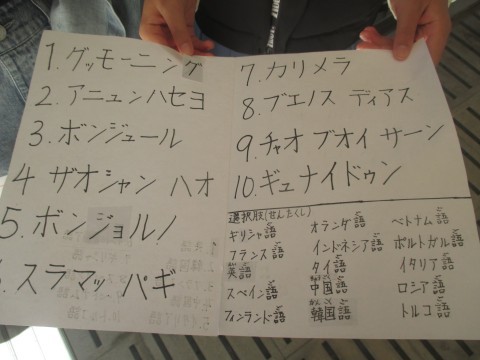 1. グッモーニング
2. アニュンハセヨ
3. ボンジュール
4 ザオシャン ハオ
5. ボンジョルノ
スラマッ パギ
7. カリメラ
8. ブエノス ディアス
9. チャオ ブオイ サーン
10. ギュナイドゥン
選択肢(せんたくし)
ギリシャ語
フランス語
英語
スペイン語
フィンランド語
オランダ語
インドネシア語
タイ語
中国語
韓国語
ベトナム語
ポルトガル語
イタリア語
ロシア語
トルコ語